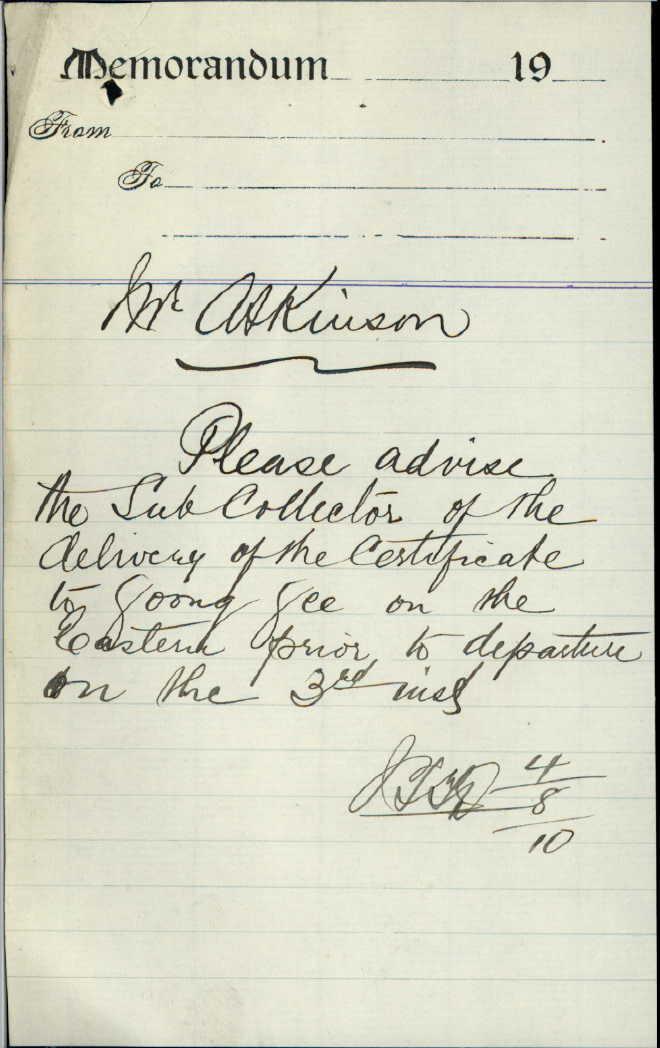 Memorandum 19
From
To
Mr Atkinson
Please advise
the Sub Collector of the
delivery of the Certificate
to Goong Gee on the
Eastern prior to departure
on the 3rd inst
4
8
10